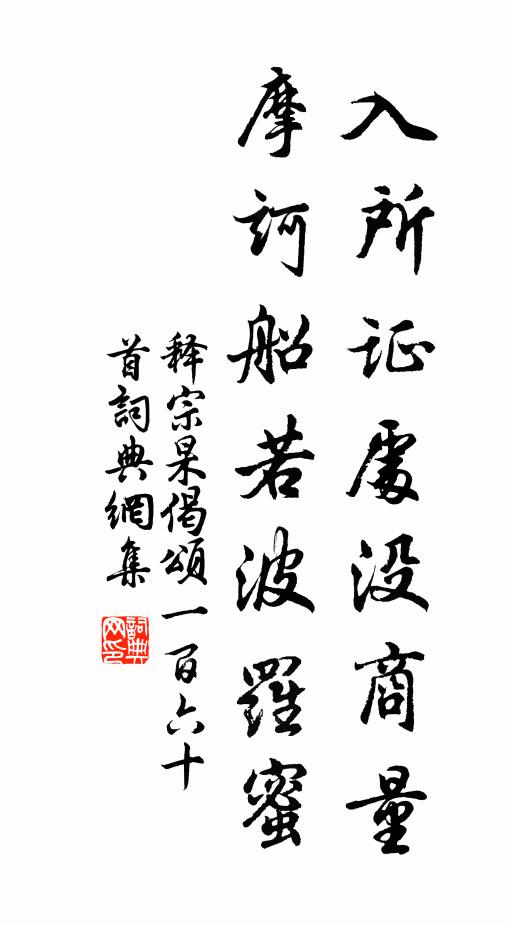 入所证處没商量
摩訶船若波羅蜜
释宗杲偈頌一百六十
首詞典網集
詞典网印